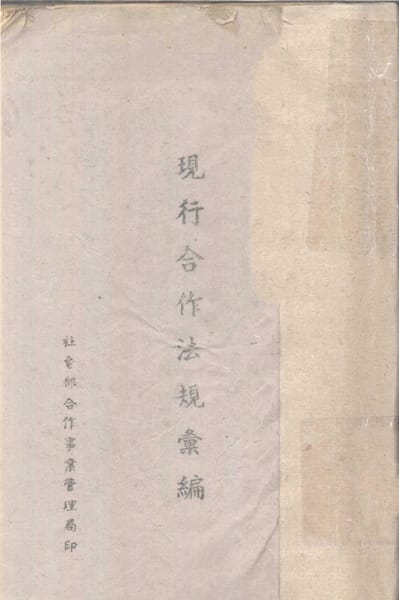 現行合作法規彙編
社会部合作事業管理局印